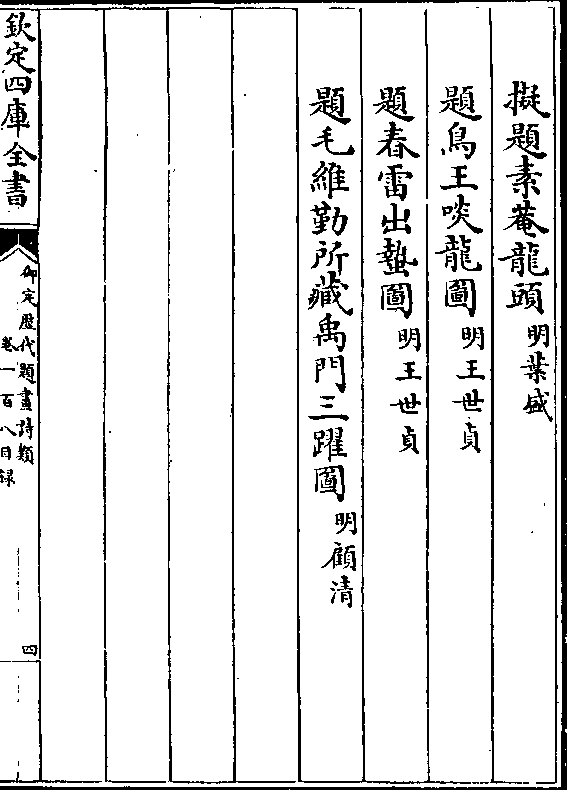 擬題素菴龍頭 明葉盛
題鳥王啖龍圖 明王世貞
題春雷出蟄圖 明王世貞
題毛維勤所藏禹門三躍圖 明顧清
欽定四庫全書
御定歷代題畫詩類
卷一百八目録
四